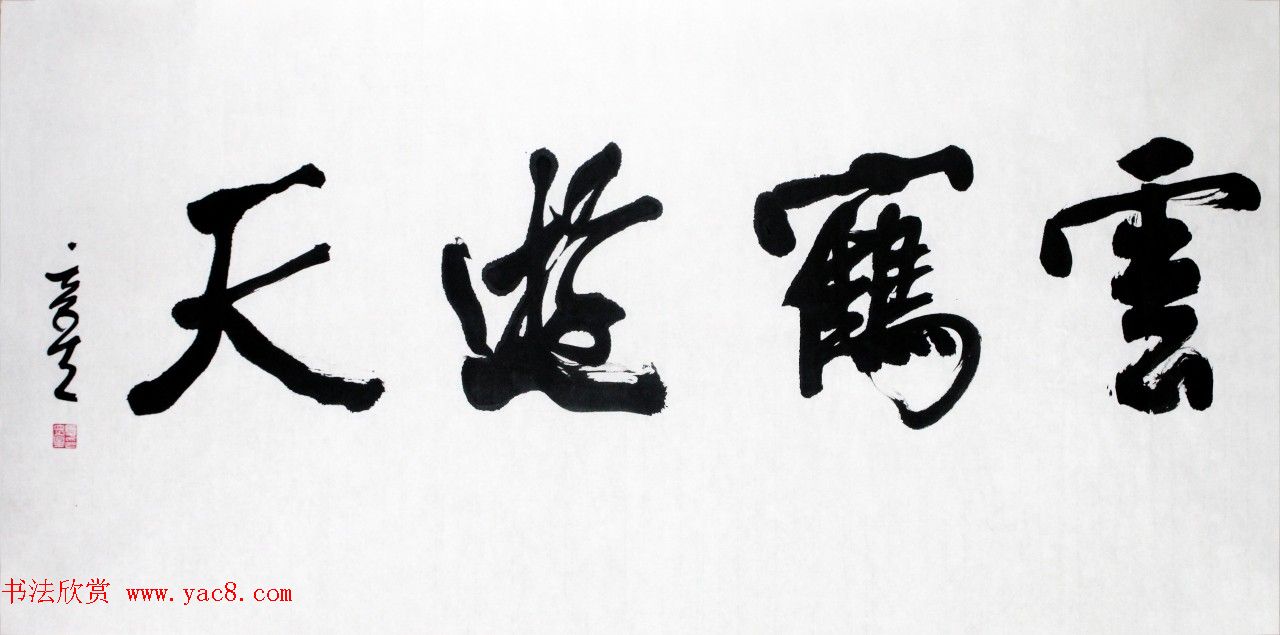 雲鶴遊天
书法欣赏 www.yac8.com